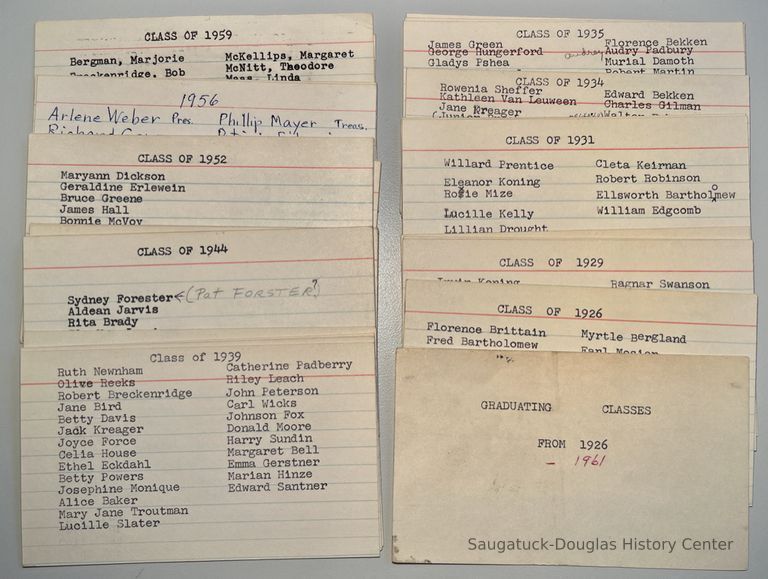 CLASS OF 1959
Bergman, Marjorie McKellips, Margaret
Breckenridge, Bob McNitt, Theodore
Maas, Linda
1956
Arlene Weber Pres. Phillip Mayer Treas.
Richard
CLASS OF 1952
Maryann Dickson
Geraldine Erlewein
Bruce Greene
James Hall
Bonnie McVoy
CLASS OF 1944
Sydney Forester ← (Pat FORSTER?)
Aldean Jarvis
Rita Brady
Class of 1939
Ruth Newnham Catherine Padberry
Olive Reeks Riley Leach
Robert Breckenridge John Peterson
Jane Bird Carl Wicks
Betty Davis Johnson Fox
Jadk Kreager Donald Moore
Joyce Force Harry Sundin
Celia House Margaret Bell
Ethel Eckdahl Emma Gerstner
Betty Powers Marian Hinze
Josephine Monique Edward Santner
Alice Baker
Mary Jane Troutman
Lucille Slater
CLASS OF 1935
James Green Florence Bekken
George Hungerford Audry Padbury
Gladys Pshea Murial Damoth
Robert Martin
CLASS OF 1934
Rowenia Sheffer Edward Bekken
Kathleen Van Leuween Charles Gilman
Jane Kreager Walter
CLASS OF 1931
Willard Prentice Cleta Keirnan
Eleanor Koning Robert Robinson
Rosie Mize Ellsworth Bartholomew
Lucille Kelly William Edgcomb
Lillian Drought
CLASS OF 1929
Irwin Koning Ragnar Swanson
CLASS OF 1926
Florence Brittain Myrtle Bergland
Fred Bartholomew Earl Mosier
GRADUATING CLASSES
FROM 1926
– 1961
Saugatuck-Douglas History Center